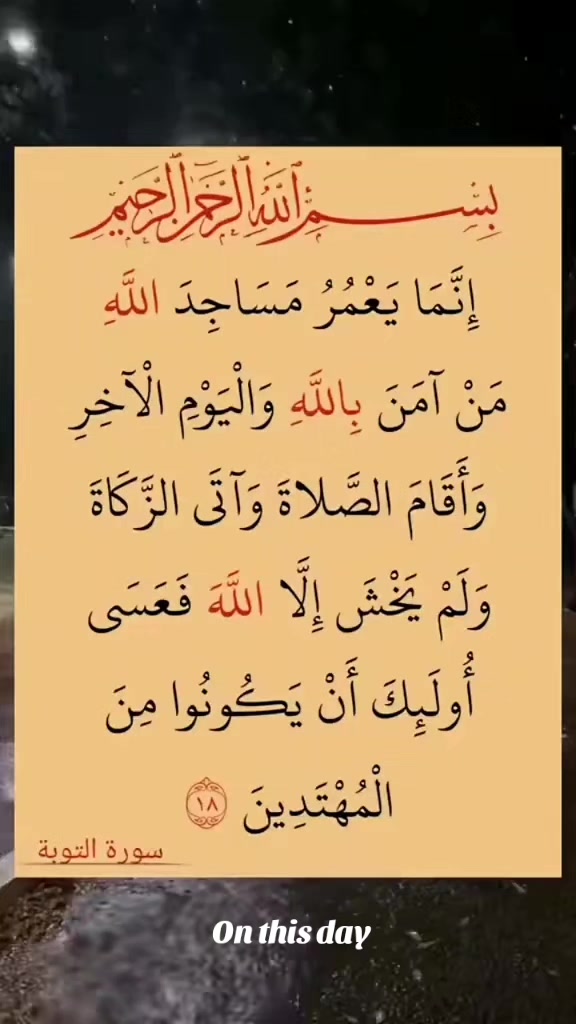 بِسْمِ ٱللَّهِ ٱلرَّحْمَٰنِ ٱلرَّحِيمِ
إِنَّمَا يَعْمُرُ مَسَاجِدَ اللَّهِ
مَنْ آمَنَ بِاللَّهِ وَالْيَوْمِ الْآخِرِ
وَأَقَامَ الصَّلاةَ وَآتَى الزَّكَاةَ
وَلَمْ يَخْشَ إِلَّا اللَّهَ فَعَسَى
أُولَئِكَ أَنْ يَكُونُوا مِنَ
الْمُهْتَدِينَ ١٨
سورة التوبة
On this day